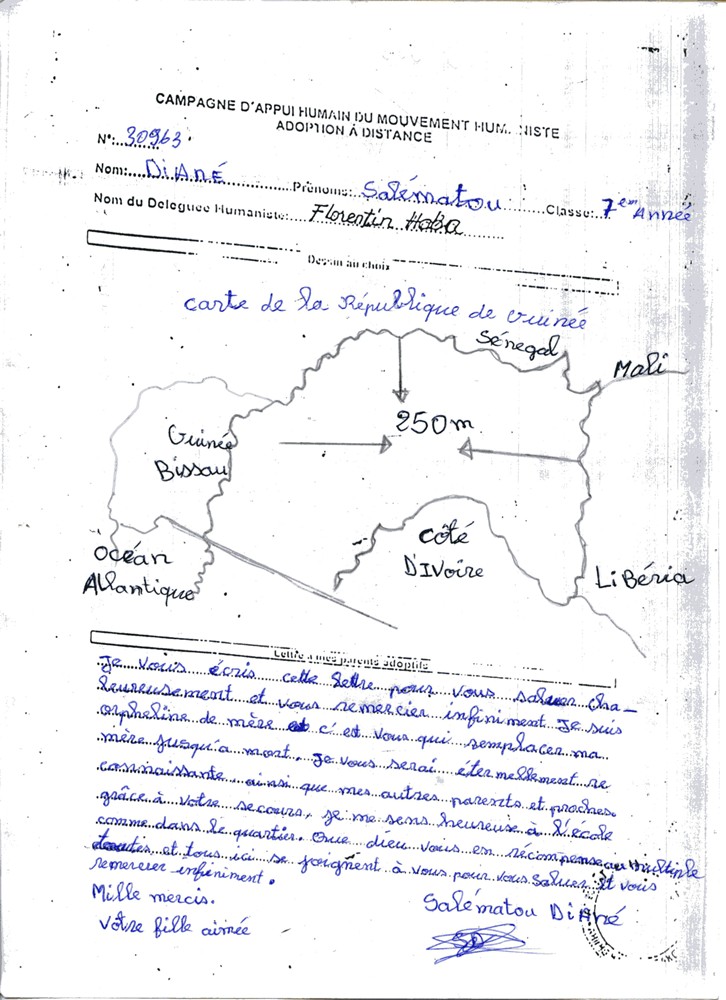 CAMPAGNE D'APPUI HUMAIN DU MOUVEMENT HUM.. NISTE
ADOPTION À DISTANCE
N°:...30963.
Nom:...DiANÉ...Prénoms:...Salématou...Classe:...7ème Année
Nom du Deleguee Humaniste:...Florentin Haba...
Dessin au choix
carte de la République de Guinée
Sénegal
Mali
250m
Guinée
Bissau
côté
D'IVoire
océan
Atlantique
LiBéria
Lettre à mes parents adoptifs
Je vous écris cette lettre pour vous saluer cha-
leureusement et vous remercier infiniment. Je suis
orpheline de mère c'est vous qui remplacer ma
mère jusqu'a mort. Je vous serai éternellement re
connaissante, ainsi que mes autres parents et proches.
grâce à votre secours, je me sens heureuse à l'école
comme dans le quartier. Que dieu vous en récompense au multiple
toutes et tous ici se joignent à vous pour vous saluer et vous
remercier infiniment.
Mille mercis.
Salématou DiANé
Votre fille aimée